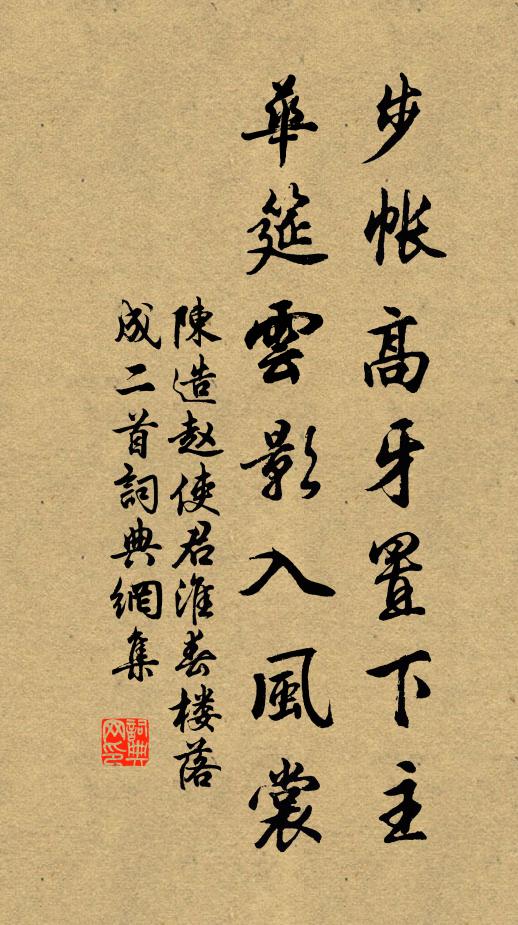 步帳高牙置下主
華筵雲影入風裳
陳造赵使君淮春楼落
成二首詞典網集
詞典网印